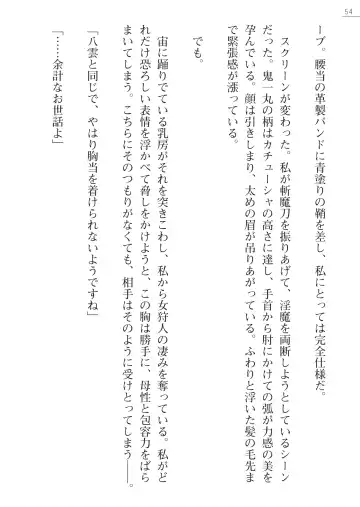 54
ープ。腰当の革製バンドに青塗りの鞘を差し、私にとっては完全仕様だ。
スクリーンが変わった。私が斬魔刀を振りあげて、淫魔を両断しようとしているシーン
だった。鬼一丸の柄はカチューシャの高さに達し、手首から肘にかけての弧が力感の美を
孕んでいる。顔は引きしまり、太めの眉が吊りあがっている。ふわりと浮いた髪の毛先ま
で緊張感が漲っている。
でも。
宙に踊りでている乳房がそれを突きこわし、私から女狩人の凄みを奪っている。私がど
れだけ恐ろしい表情を浮かべて脅しをかけようと、この胸は勝手に、母性と包容力をばら
まいてしまう。こちらにそのつもりがなくても、相手はそのように受けとってしまう――。
「八雲と同じで、やはり胸当を着けられないようですね」
「……余計なお世話よ」